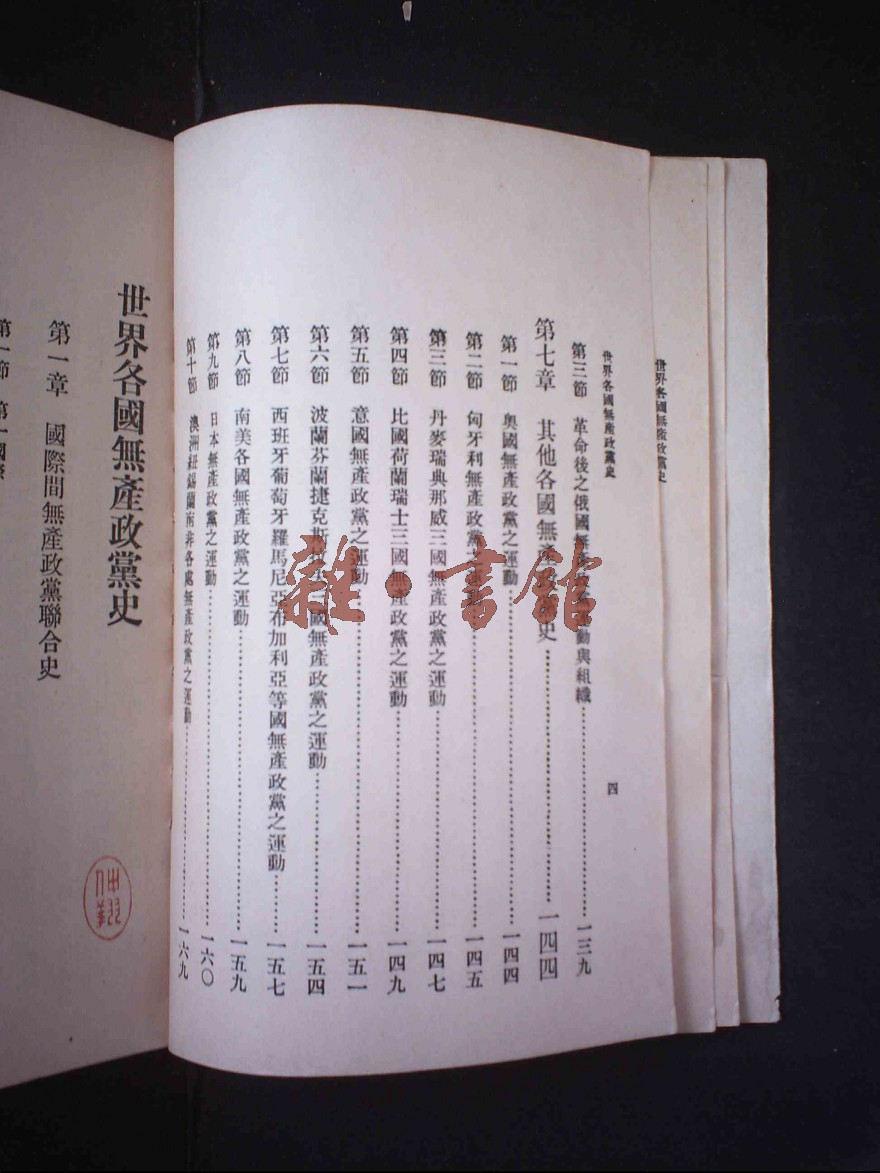 世界各國無產政黨史
世界各國無產政黨史
四
第三節 革命後之俄國無產政黨運動與組織 一三九
第七章 其他各國無產政黨史 一四四
第一節 奧國無產政黨之運動 一四四
第二節 匈牙利無產政黨之運動 一四五
第三節 丹麥瑞典那威三國無產政黨之運動 一四七
第四節 比國荷蘭瑞士三國無產政黨之運動 一四九
第五節 意國無產政黨之運動 一五一
第六節 波蘭芬蘭捷克斯 國無產政黨之運動 一五四
第七節 西班牙葡萄牙羅馬尼亞布加利亞等國無產政黨之運動 一五七
第八節 南美各國無產政黨之運動 一五九
第九節 日本無產政黨之運動 一六〇
第十節 澳洲紐錫蘭南非各處無產政黨之運動 一六九
世界各國無產政黨史
第一章 國際間無產政黨聯合史
第一節 第一國際
雜·書館